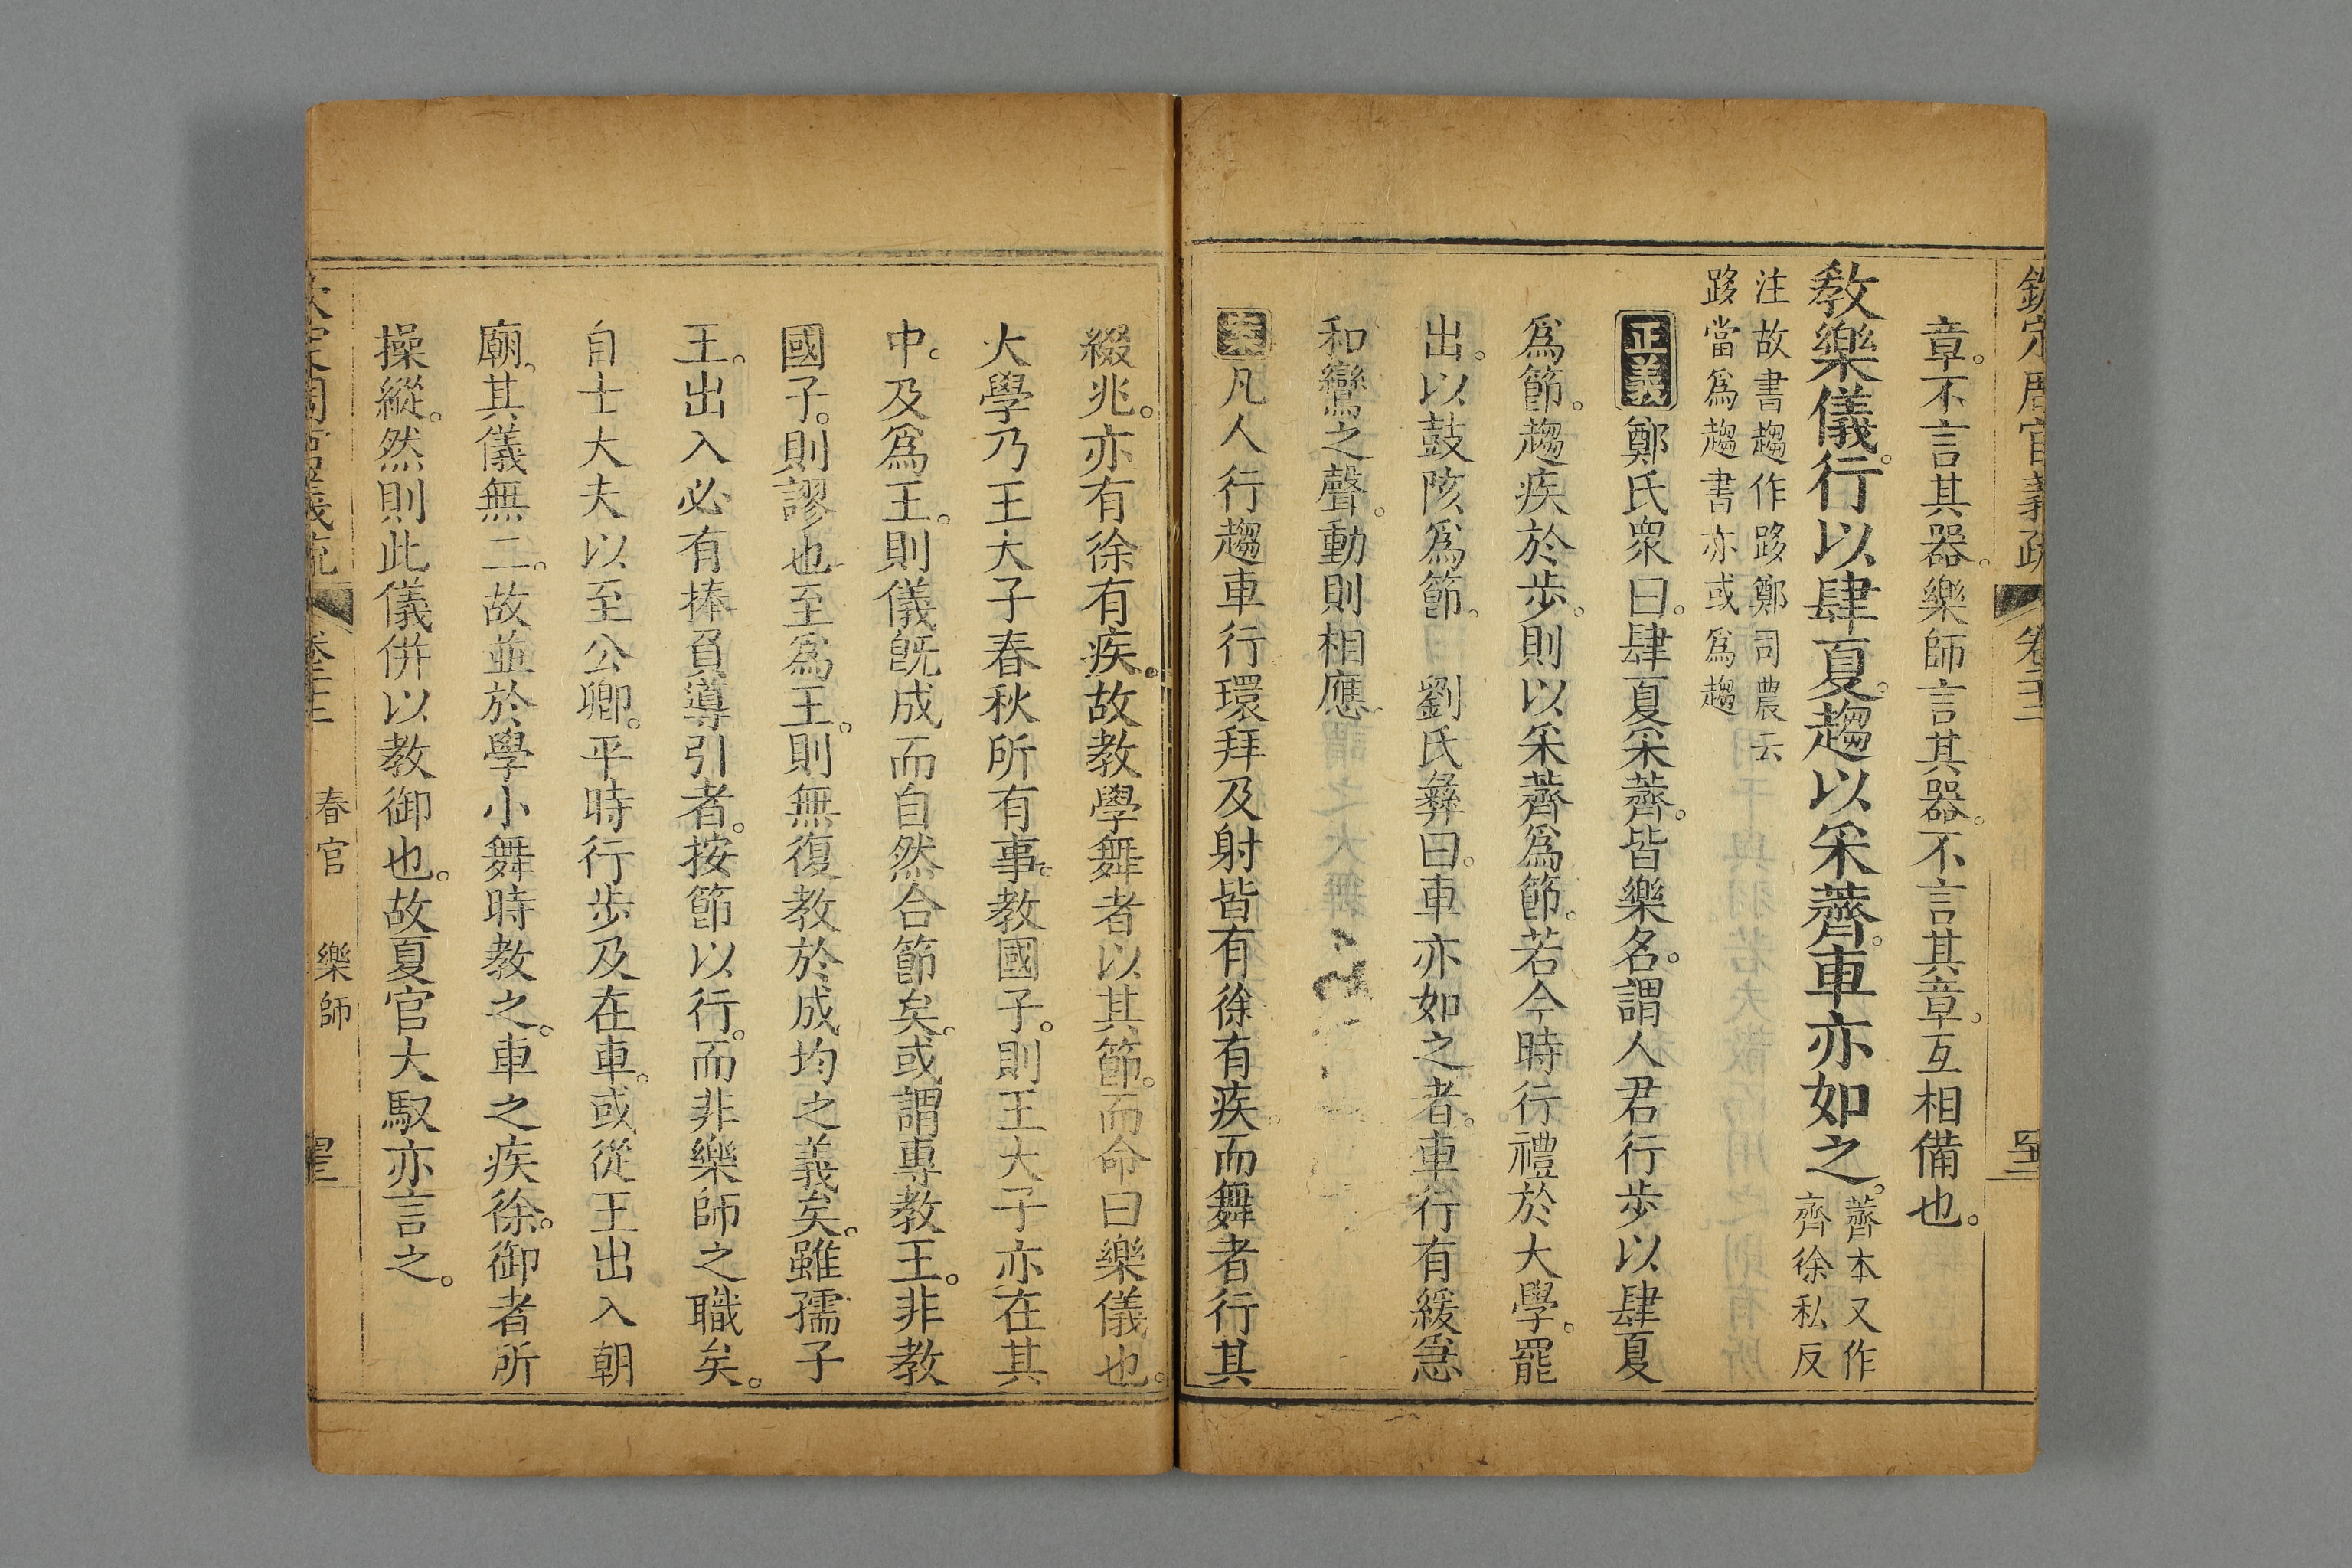 欽定周官義疏 卷二十二
章。不言其器。樂師言其器。不言其章。互相備也。
教樂儀。行以肆夏。趨以采薺。車亦如之。薺本又作
齊徐私反
注故書趨作跢鄭司農云
跢當爲趨書亦或爲趨
正義鄭氏衆曰。肆夏采薺。皆樂名。謂人君行步以肆夏
爲節。趨疾於步。則以采薺爲節。若今時行禮於大學。罷
出。以鼓陔爲節。 劉氏彝曰。車亦如之者。車行有緩急
和鸞之聲。動則相應。
案凡人行趨車行環拜及射皆有徐有疾。而舞者行其
綴兆。亦有徐有疾。故教學舞者以其節。而命曰樂儀也。
大學乃王大子春秋所有事。教國子。則王大子亦在其
中。及爲王。則儀旣成而自然合節矣。或謂專教王。非教
國子。則謬也至爲王。則無復教於成均之義矣。雖孺子
王。出入必有捧負導引者。按節以行。而非樂師之職矣。
自士大夫以至公卿。平時行步及在車。或從王出入朝
廟。其儀無二。故並於學小舞時教之。車之疾徐。御者所
操縱。然則此儀併以教御也。故夏官大馭亦言之。
春官 樂師